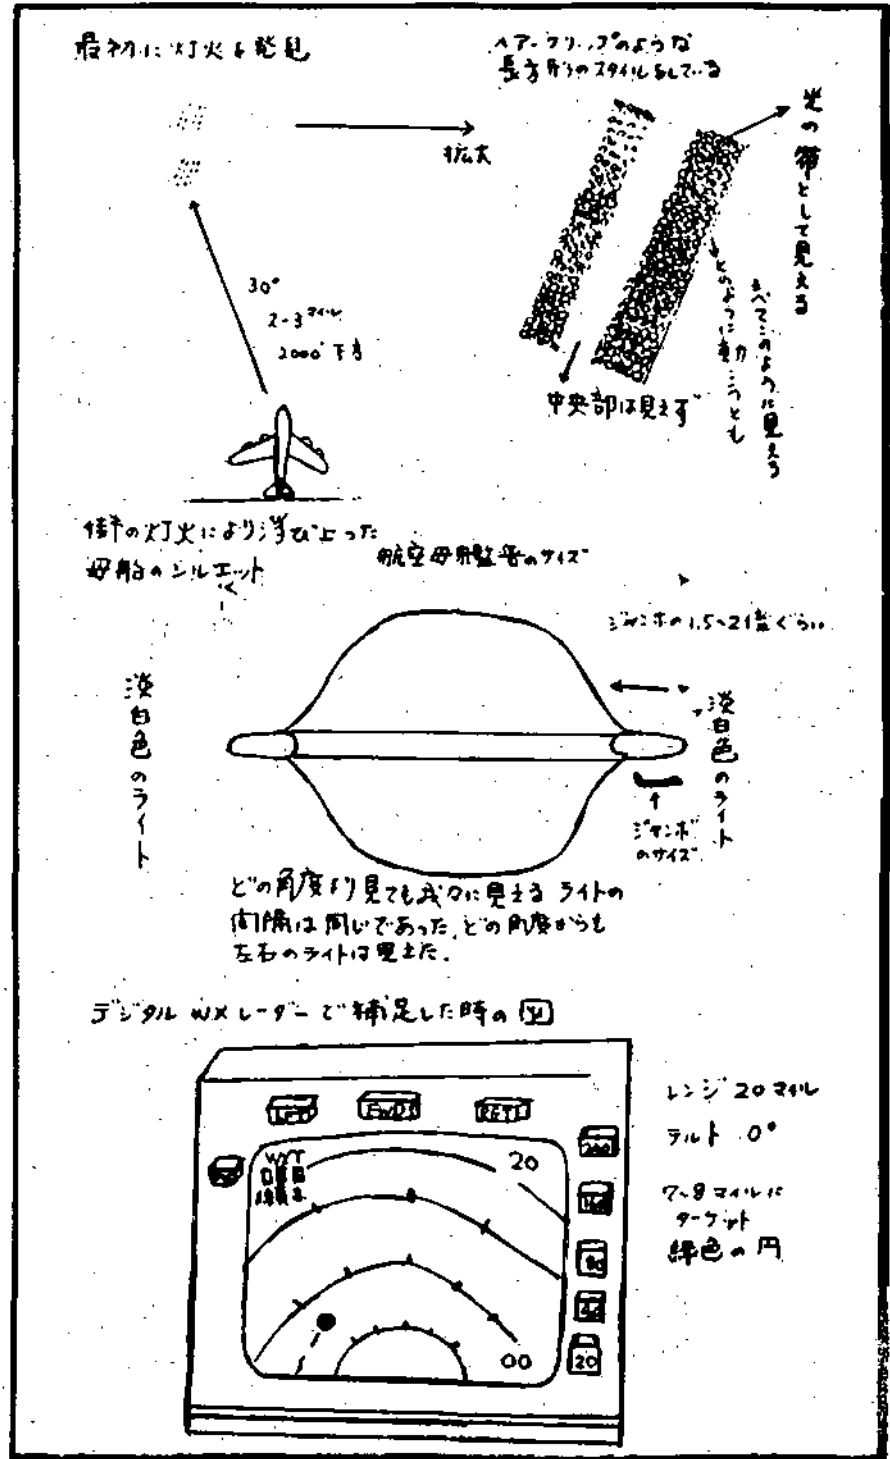 最初に灯火を発見
ヘアークリップのような
長方形のスタイルをしている
拡大
光の帯として見える
30°
2-3マイル
2000' 下方
どのように動こうとも
すべてこのように見える
中央部は見えず
街の灯火により浮び上った
母船のシルエット
航空母艦のサイズ
ジャンボの1.5~2倍ぐらい
淡白色のライト
淡白色のライト
ジャンボ
のサイズ
どの角度より見ても我々に見えるライトの
間隔は同じであった、どの角度からも
左右のライトは見えた.
デジタル WXレーダーで補足した時の図
LFT
FWD
WXT
20
00
レンジ 20マイル
チルト 0°
7~8マイルに
ターゲット
緑色の円
20